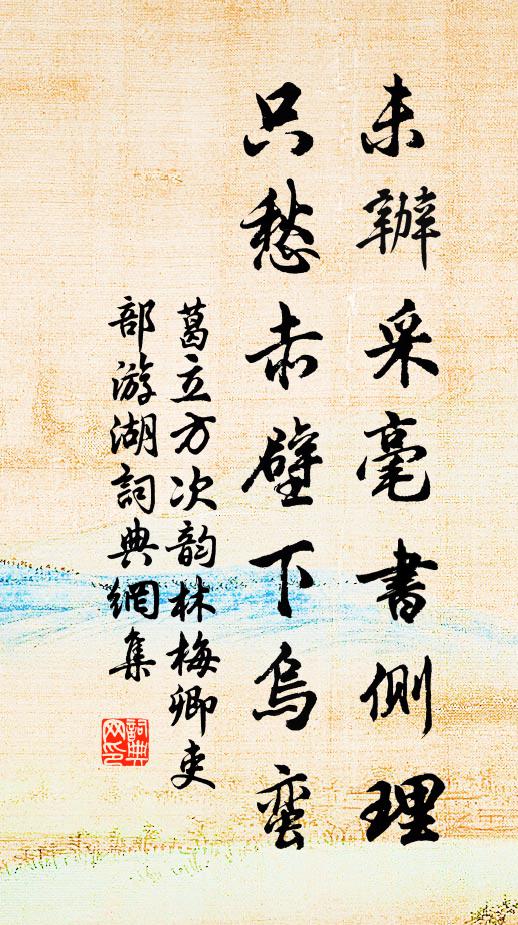 未辦采毫書側理
只愁赤壁下烏蛮
葛立方次韵林梅卿吏
部游湖詞典網集
詞典网印